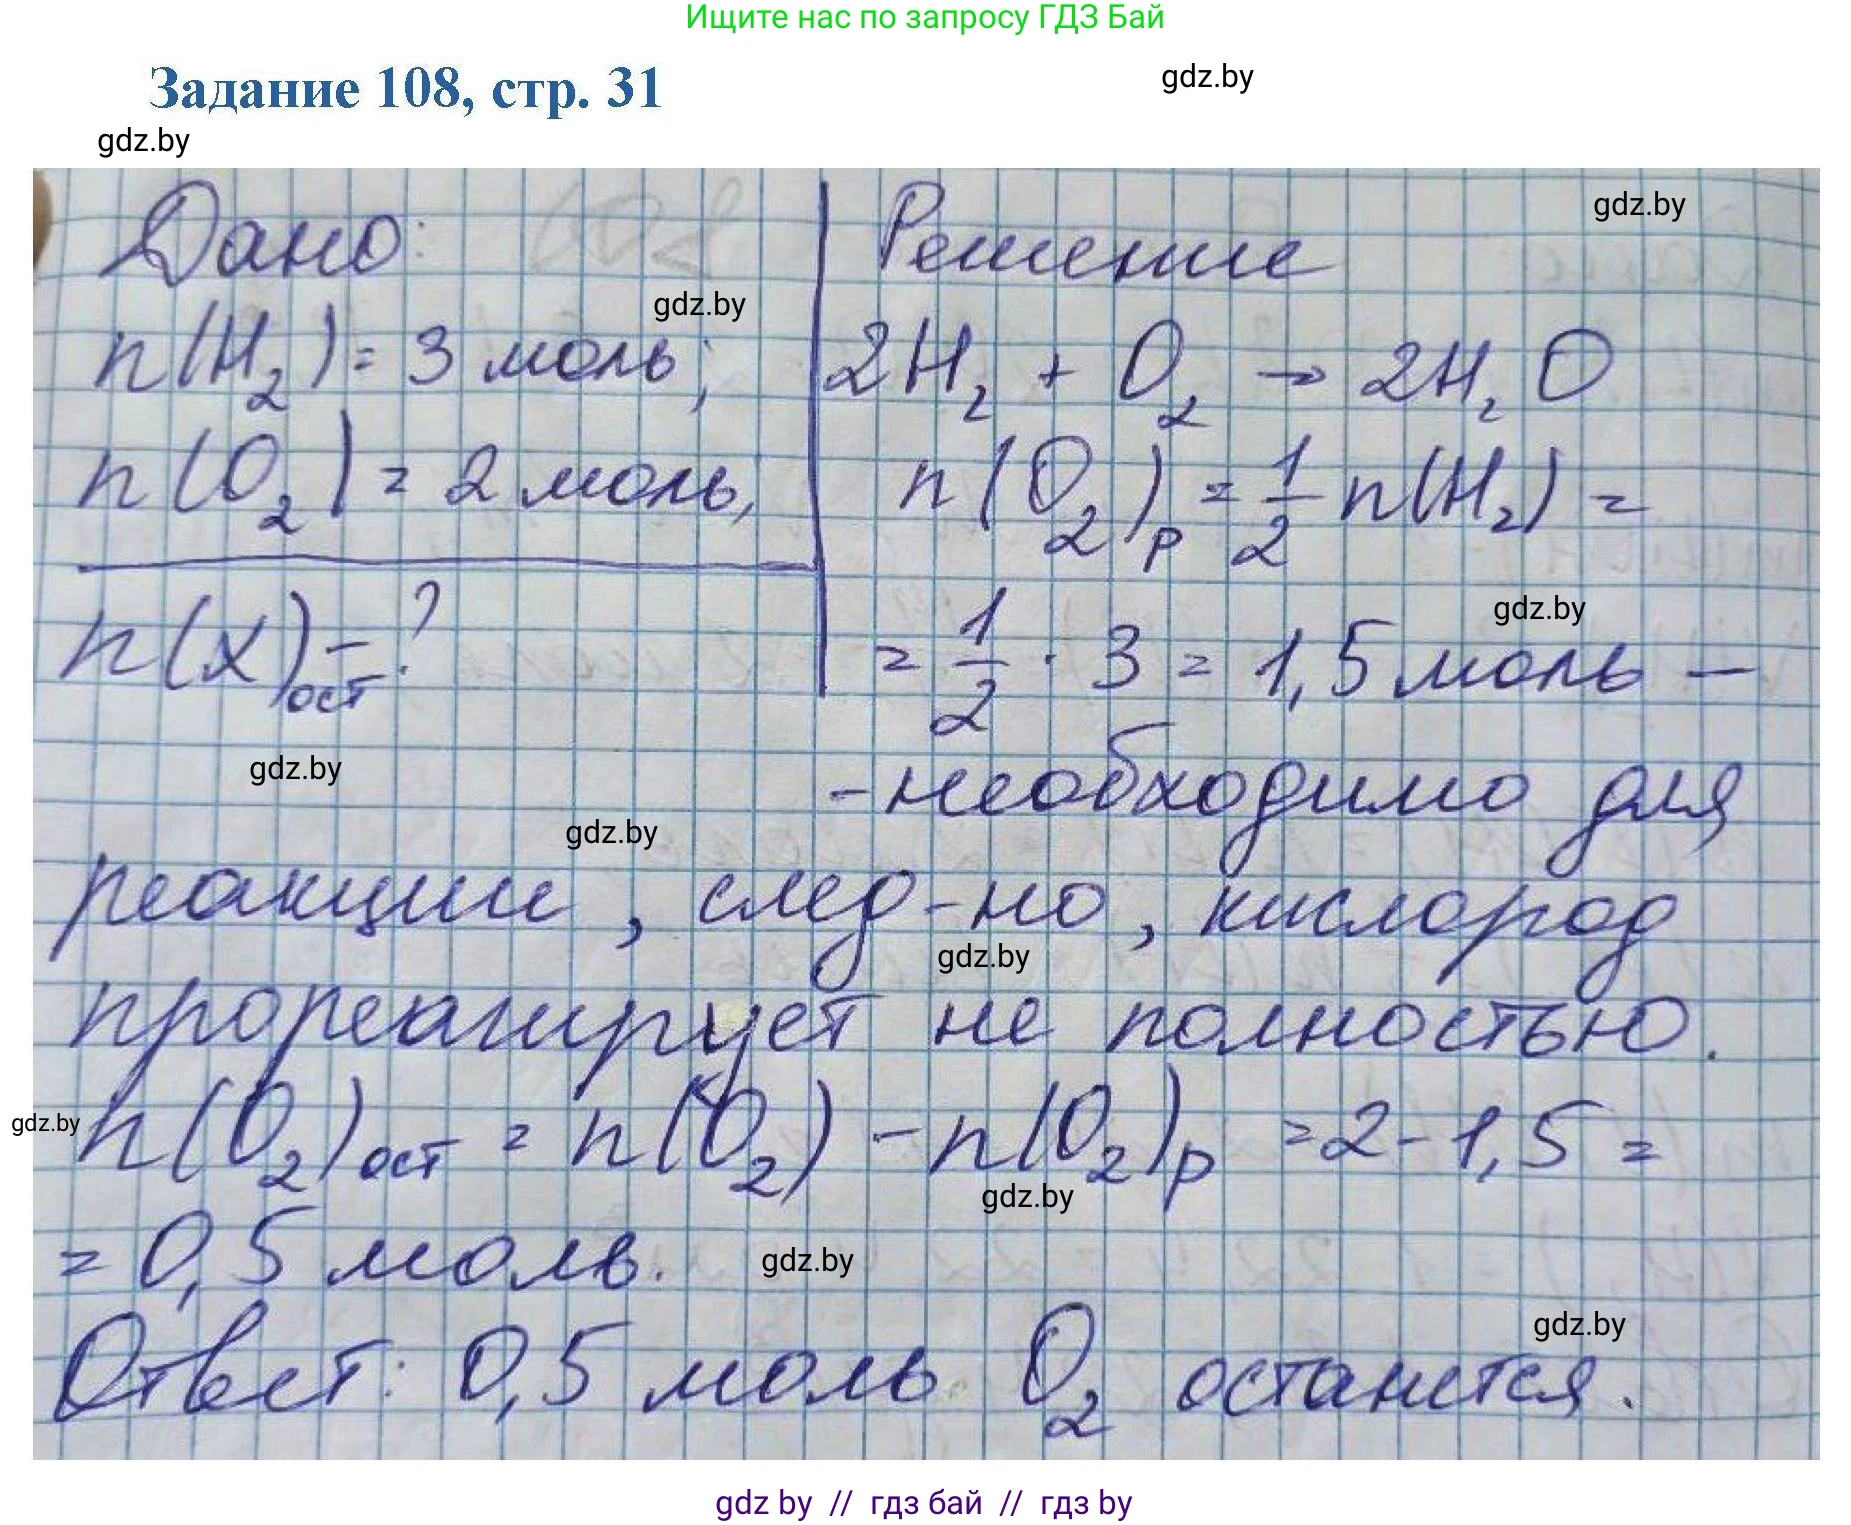 Ищите нас по запросу ГДЗ Бай
Задание 108, стр. 31
gdz.by
gdz.by
Дано: 108
Решение
gdz.by
gdz.by
n(H₂) = 3 моль;
2H₂ + O₂ → 2H₂O
n(O₂) = 2 моль,
n(O₂)р = 1/2 n(H₂) =
n(x)ост - ?
gdz.by
= 1/2 · 3 = 1,5 моль -
gdz.by
- необходимо для
gdz.by
реакции, след-но, кислород
gdz.by
прореагирует не полностью.
gdz.by
n(O₂)ост = n(O₂) - n(O₂)р = 2 - 1,5 =
gdz.by
= 0,5 моль.
gdz.by
gdz.by
Ответ: 0,5 моль O₂ останется.
gdz by // гдз бай // гдз by